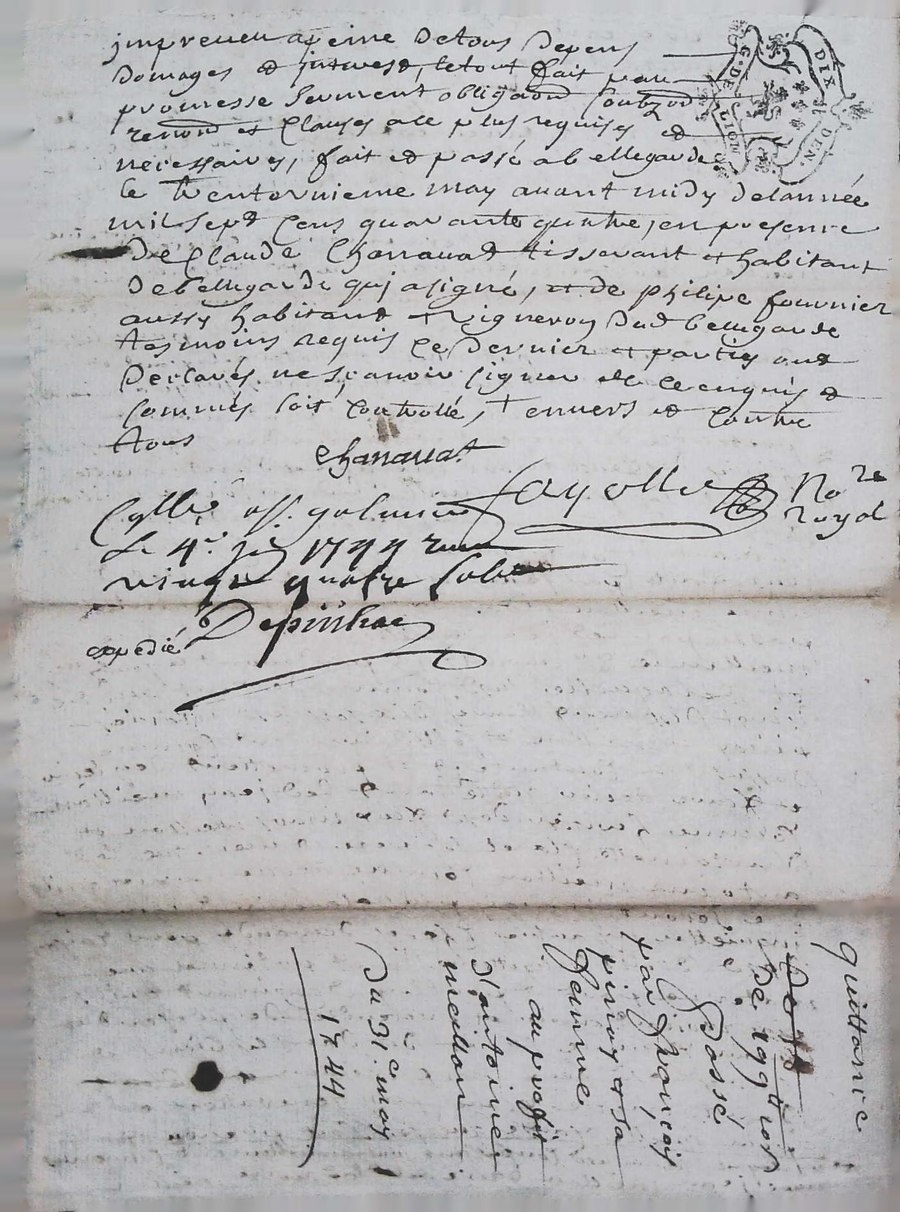 impreveu a peine de tous depens
domages et interest, le tout fait par
promesse serment obligaōn soubzōn
renonōn et clauses a ce plus requises et
necessaires, fait et passé a bellegarde
le trente et unieme may avant midy de lannée
mil sept cens quarante quatre, en presence
de Claude Chanavat tisserant et habitant
de bellegarde qui a signé, et de philipe fournier
aussy habitant et vigneron dud bellegarde
tesmoins requis ce dernier et parties ont
declarés ne scavoir signer de ce enquis et
sommés soit controllé, + envers et contre
tous
Chanavat
Cōllé a st galmier
le 4e 1744 reçu
vingt quatre sols
fayolle No.re
royal
expedié
G. DE
DIX DEN.
quittance
de
passé
par françois
et sa
femme
au profit
d'antoine
meillan
Du 31e may
1744